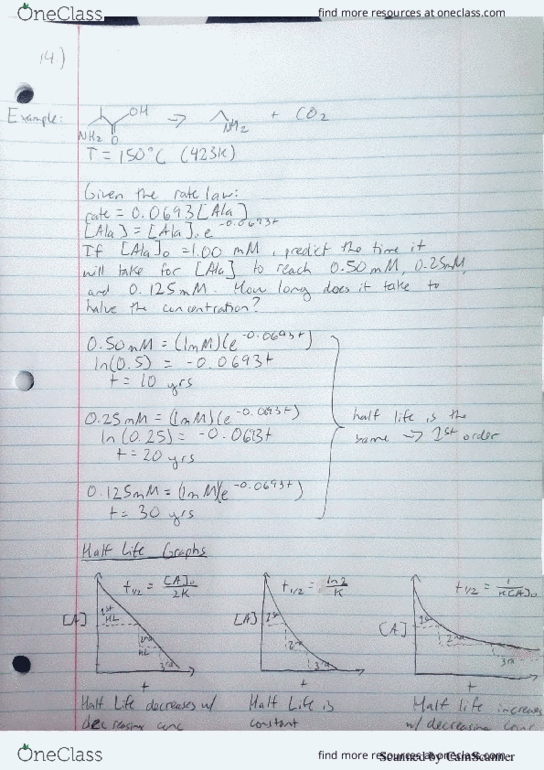 OneClass
find more resources at oneclass.com
14.)
Example:
OH
NH2 O
→
NH2
+ CO2
T = 150°C (423K)
Given the rate law:
rate = 0.0693[Ala]
[Ala] = [Ala]o e^-0.0693t
If [Ala]o = 1.00 mM, predict the time it
will take for [Ala] to reach 0.50mM, 0.25mM,
and 0.125mM. How long does it take to
halve the concentration?
0.50mM = (1mM)(e^-0.0693t)
ln(0.5) = -0.0693t
t = 10 yrs
0.25mM = (1mM)(e^-0.0693t)
ln(0.25) = -0.0693t
t = 20 yrs
0.125mM = (1mM)(e^-0.0693t)
t = 30 yrs
half life is the
same → 1st order
Half Life Graphs
t1/2 = [A]o/2K
[A]
1st
HL
2nd
HL
3rd
t
Half Life decreases w/
decreasing conc
t1/2 = ln2/K
[A]
1st
2nd
3rd
t
Half Life is
constant
t1/2 = 1/K[A]o
[A]
1st
2nd
3rd
t
Half life increases
w/ decreasing conc
OneClass
find more resources at oneclass.com
Scanned by CamScanner